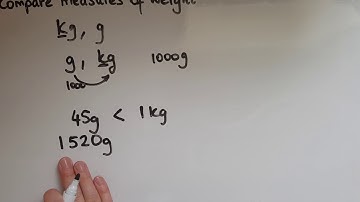 Compare Measures of Weight
kg, g
g, kg 1000g
1000
45g < 1kg
1520g